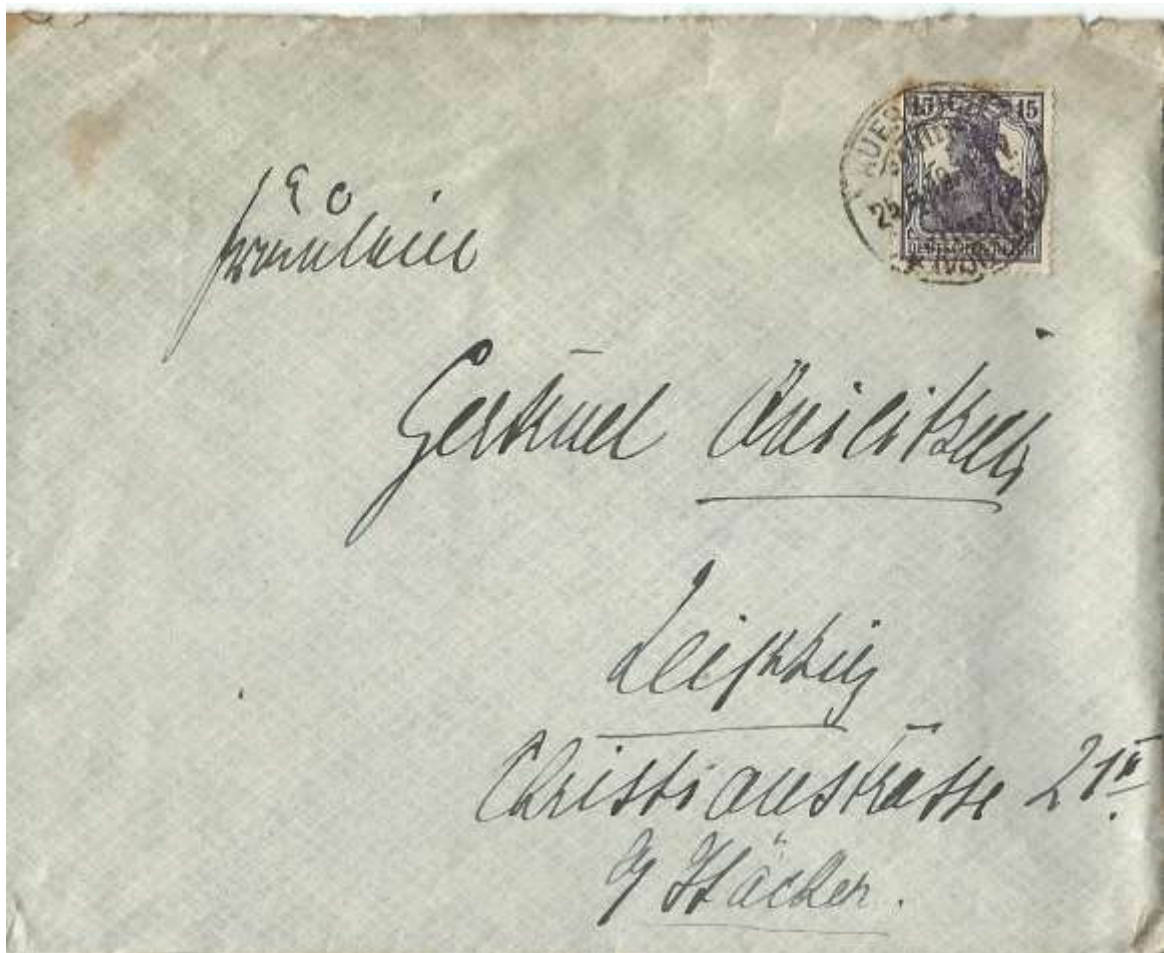 15 15
DEUTSCHES REICH
Fräulein
Gertrud
Leipzig
Christianstrasse 21 II
b/ Häcker.